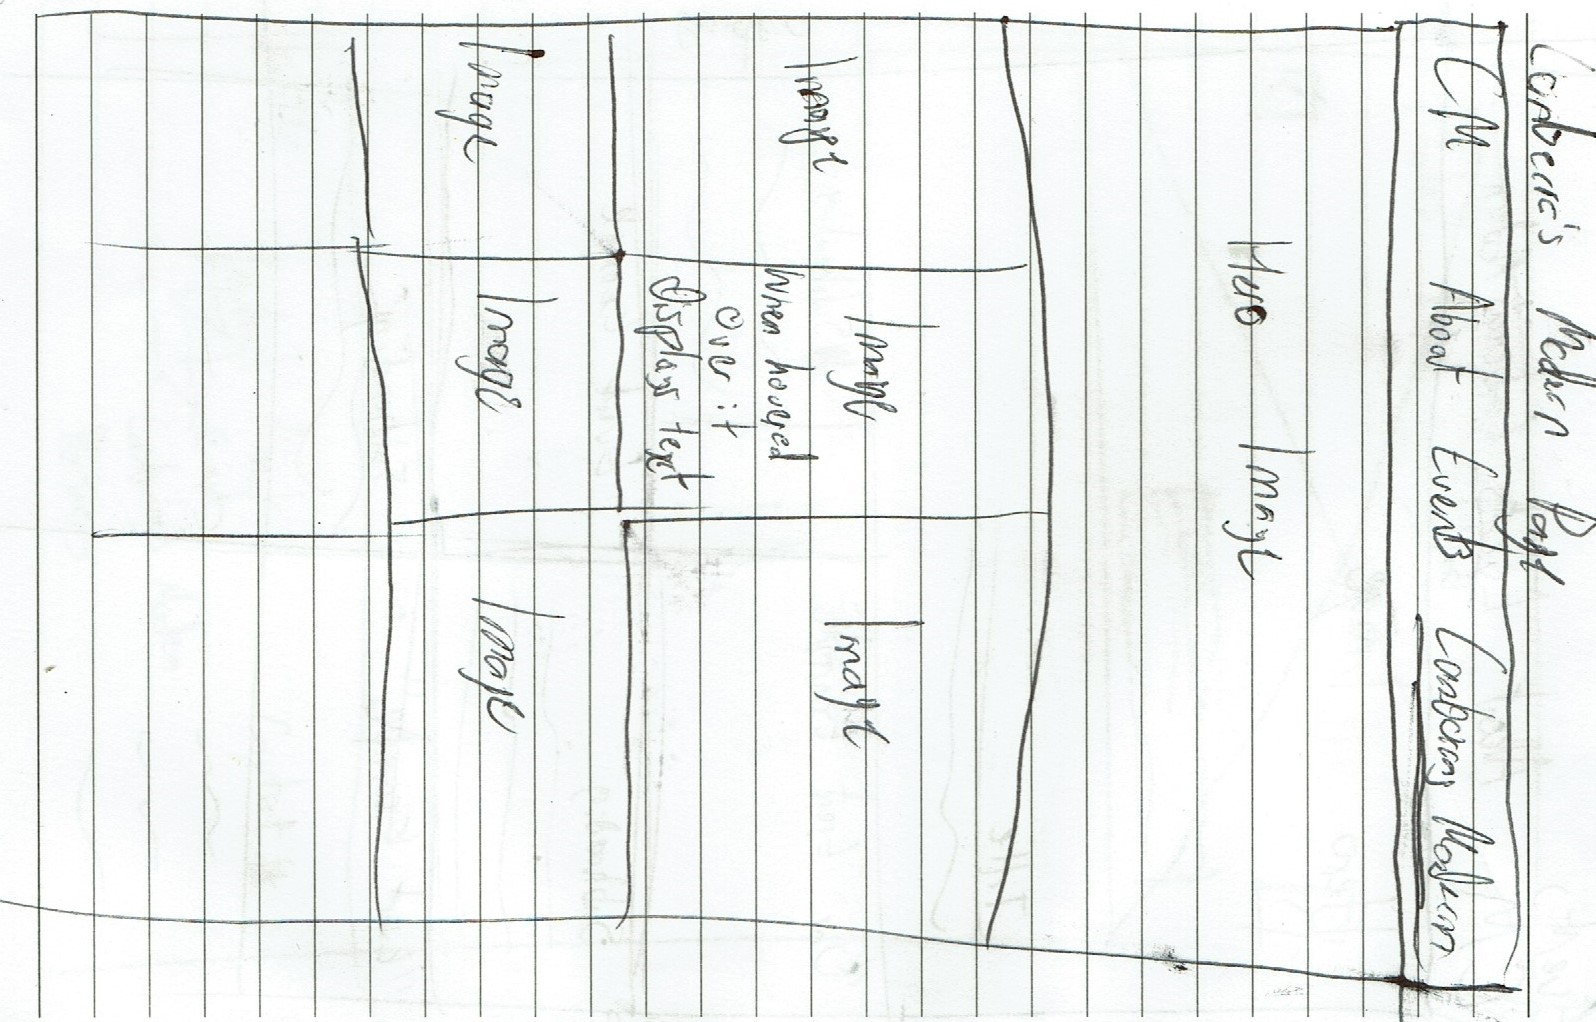 Canberra's Modern Page
CM About Events Canberras Modern
Hero Image
Image Image Image
When hovered
over it
Displays text
Image Image Image